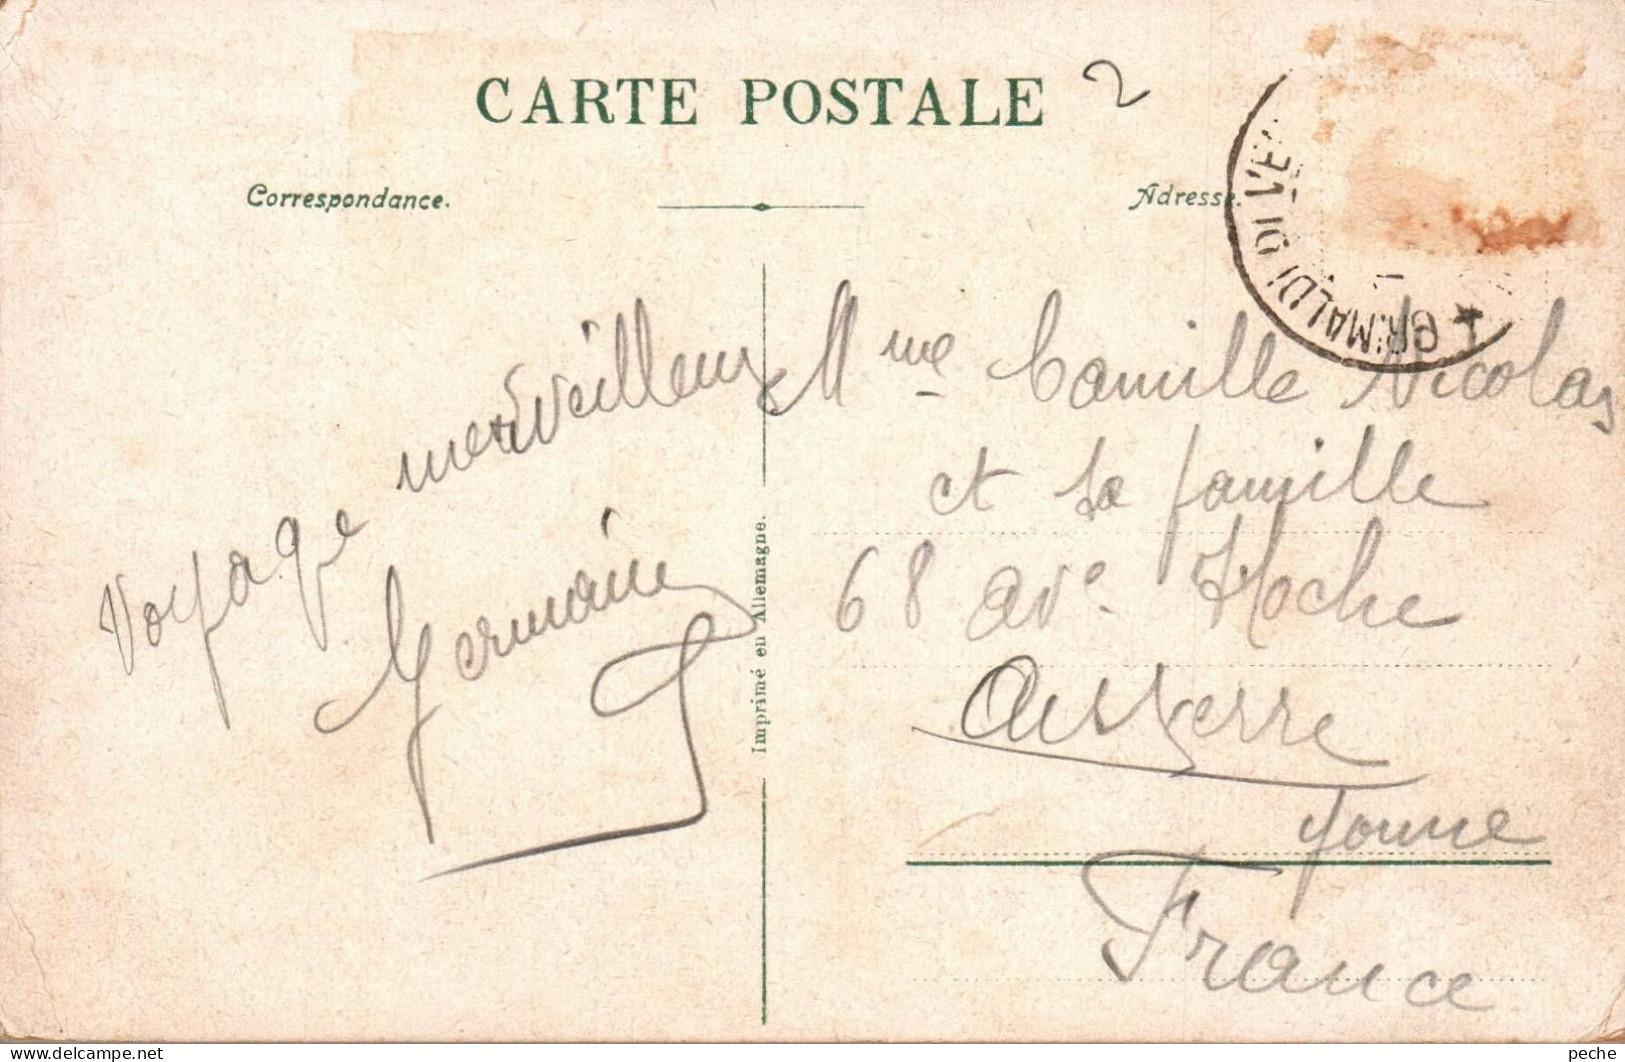 CARTE POSTALE
2
Correspondance.
Adresse.
GRIMALDI DI VE
Voyage merveilleux
Germaine
Imprimé en Allemagne.
Mme Camille Nicolas
et sa famille
68 ave Hoche
Auxerre
Yonne
France
delcampe.net
peche